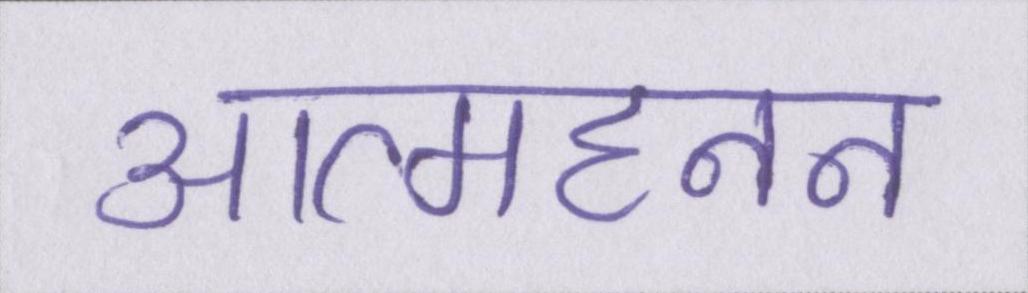 आत्महनन